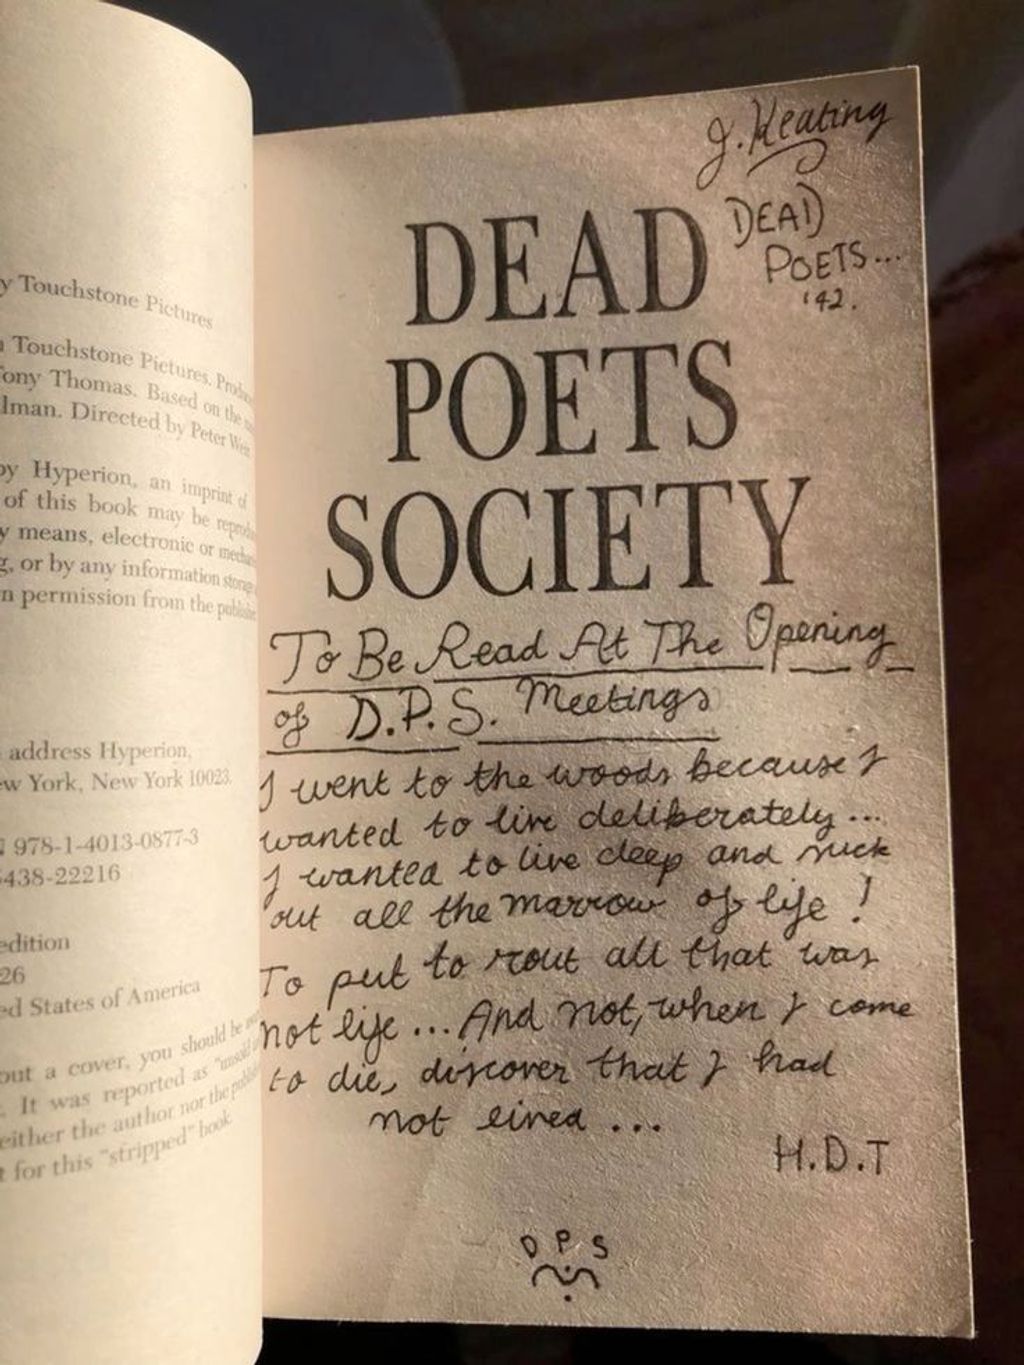 y Touchstone Pictures
Touchstone Pictures.
Tony Thomas. Based on the
lman. Directed by Peter Weir
by Hyperion, an imprint of
of this book may be
y means, electronic or
g, or by any information storage
n permission from the publisher
address Hyperion,
ew York, New York 10023.
978-1-4013-0877-3
438-22216
edition
26
ed States of America
out a cover, you should be
. It was reported as "unsold
either the author nor the
t for this "stripped" book.
J. Keating
DEAD
POETS...
'42.
DEAD
POETS
SOCIETY
To Be Read At The Opening
of D.P.S. Meetings
I went to the woods because I
wanted to live deliberately...
I wanted to live deep and suck
out all the marrow of life!
To put to rout all that was
not life... And not, when I come
to die, discover that I had
not lived...
H.D.T
D P S